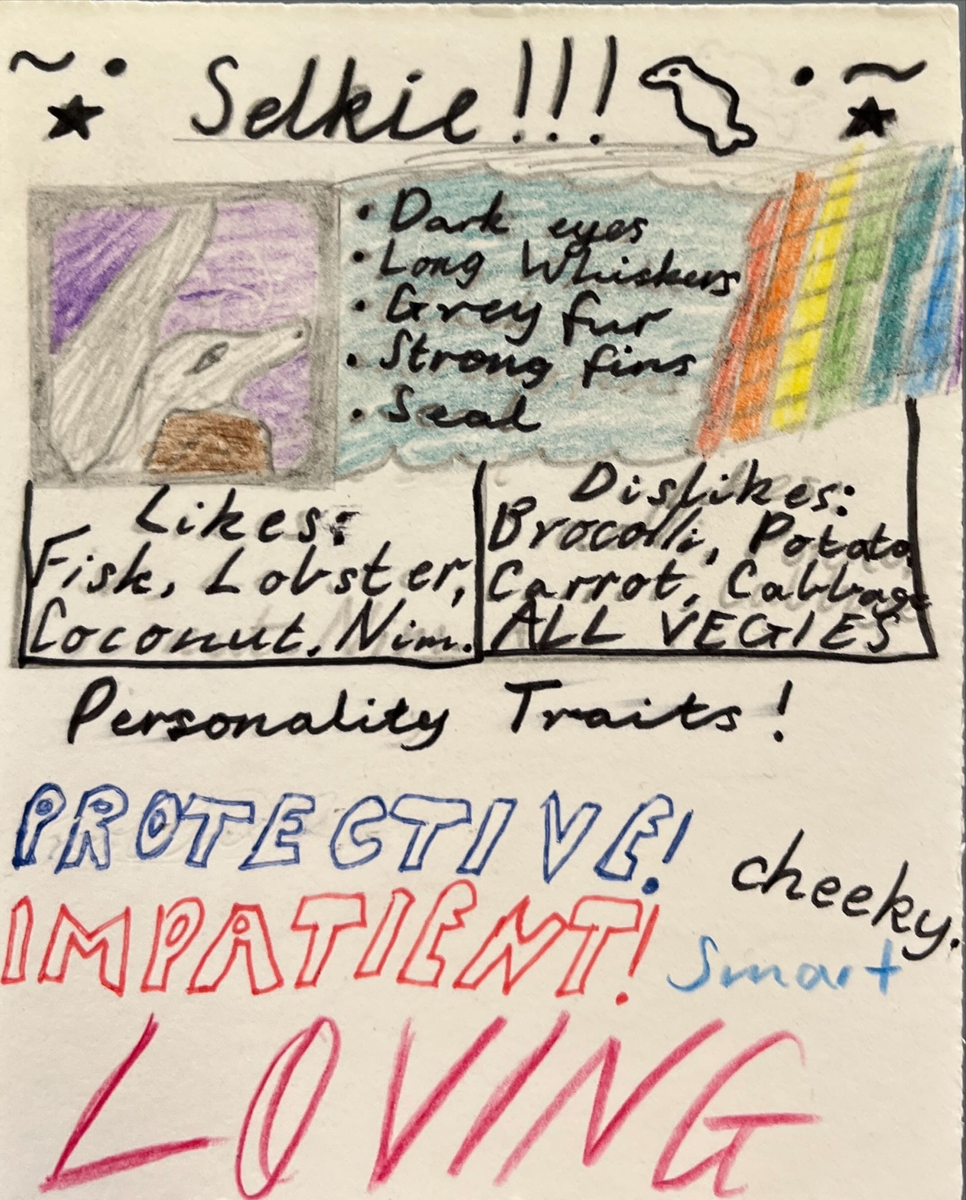 Selkie!!!
• Dark eyes
• Long Whiskers
• Grey fur
• Strong fins
• Seal
Likes:
Fish, Lobster,
Coconut, Nim.
Dislikes:
Brocolli, Potato,
Carrot, Cabbage
ALL VEGIES
Personality Traits!
PROTECTIVE!
cheeky.
IMPATIENT!
Smart
LOVING